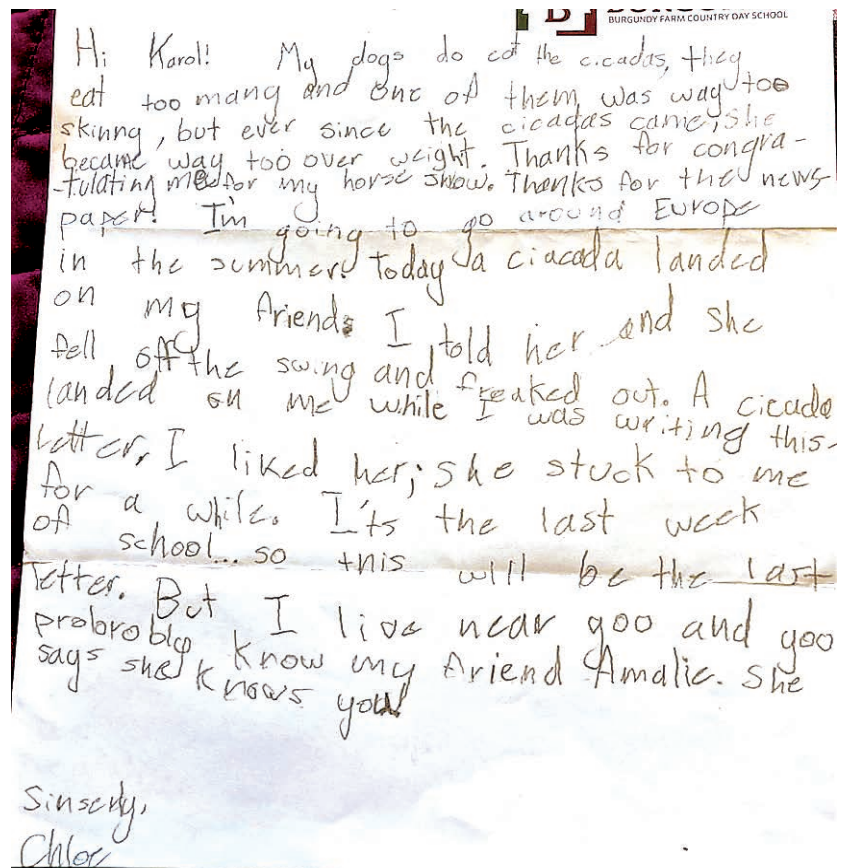 BURGUNDY FARM COUNTRY DAY SCHOOL
Hi Karol! My dogs do eat the cicadas, they
eat too many and one of them was way too
skinny, but ever since the cicadas came, she
became way too over weight. Thanks for congra-
-tulating me for my horse show. Thanks for the news-
paper! I'm going to go around Europe
in the summer! Today a ciacada landed
on my friend. I told her and she
fell off the swing and freaked out. A cicada
landed on me while I was writing this
letter, I liked her; she stuck to me
for a while. I'ts the last week
of school... so this will be the last
letter. But I live near you and you
probrobly know my friend Amalie. She
says she knows you!
Sinserly,
Chloe